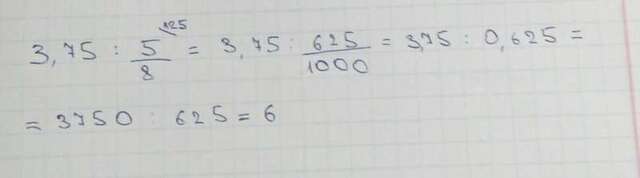 3,75 : 5/8 \125 = 3,75 : 625/1000 = 3,75 : 0,625 =
= 3750 : 625 = 6